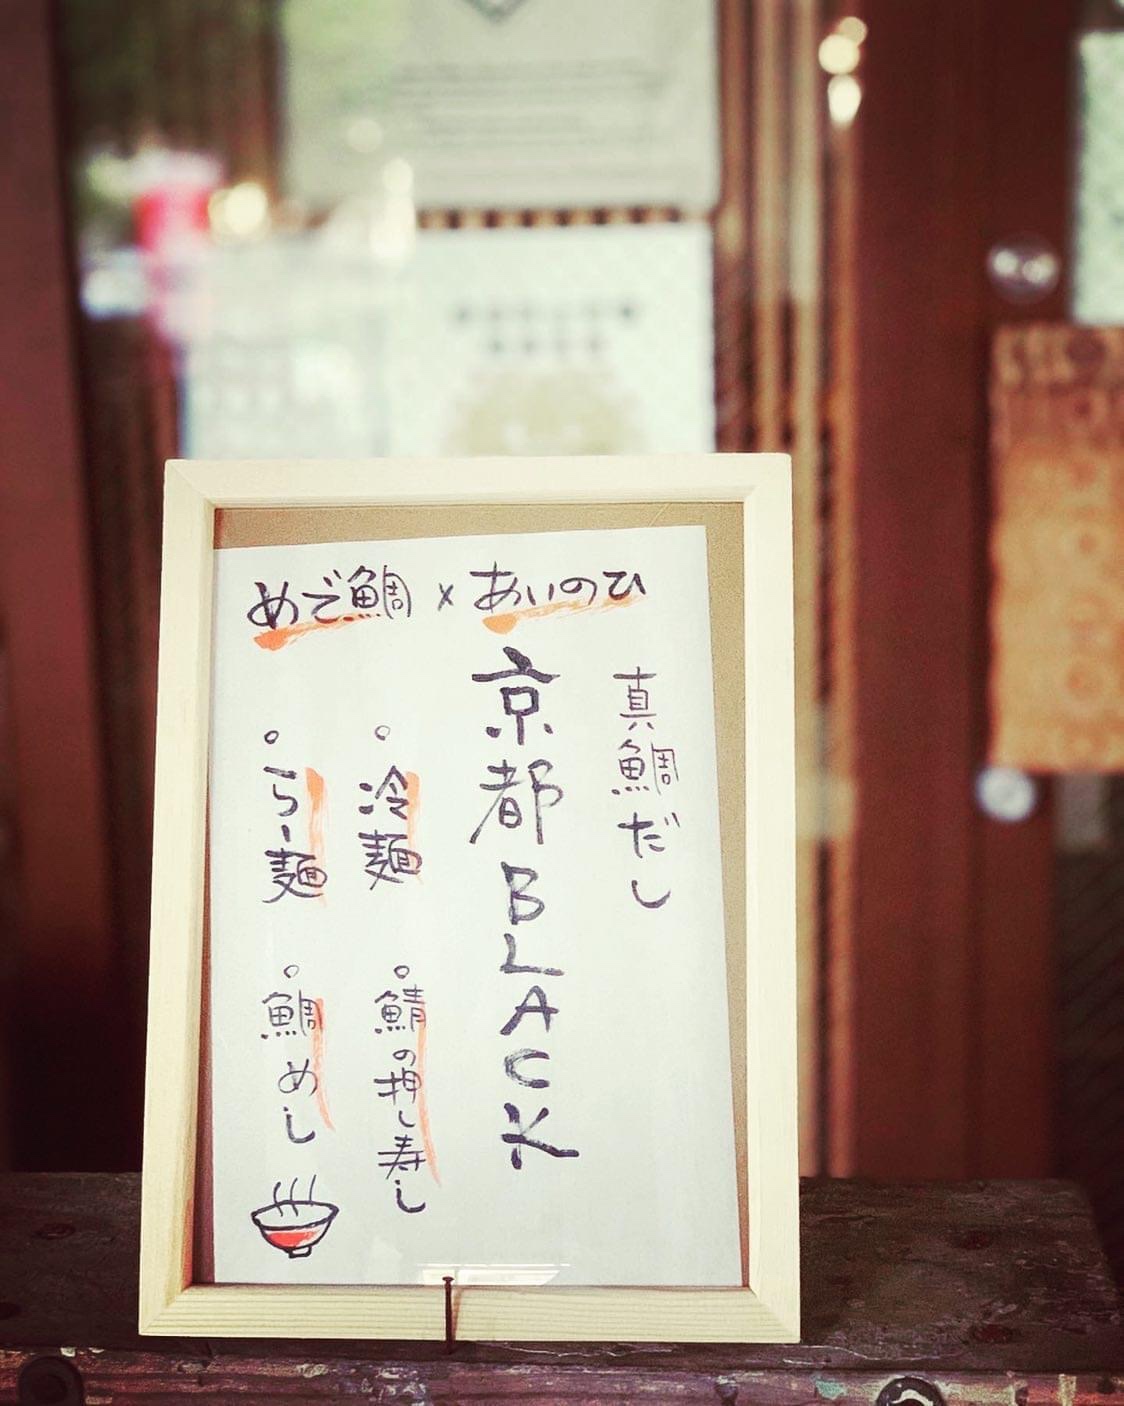 めで鯛 × あいのひ
真鯛だし
京都BLACK
。冷麺
。鯖の押し寿し
。らー麺
。鯛めし